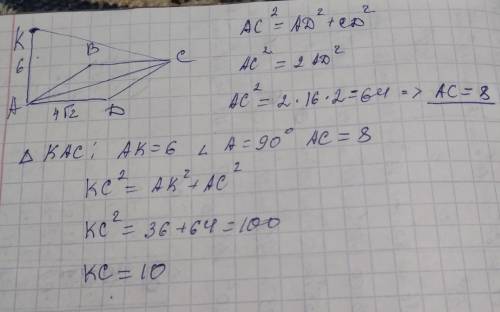 K
6
B
C
A
4√2
D
AC² = AD² + CD²
AC² = 2 AD²
AC² = 2 · 16 · 2 = 64 => AC = 8
△ KAC; AK = 6 ∠ A = 90° AC = 8
KC² = AK² + AC²
KC² = 36 + 64 = 100
KC = 10